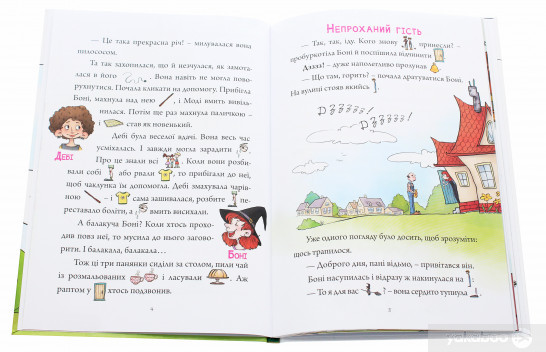 — Це така прекрасна річ! – милувалася вона
пилососом.
Та так захопилася, що й незчулася, як замота-
лася в його . Вона навіть не могла пово-
рухнутися. Почала кликати на допомогу. Прибігла
Боні, махнула над нею , і Моді вмить вивіль-
нилася. Потім ще раз махнула паличкою –
і став як новенький.
Дебі була веселої вдачі. Вона весь час
усміхалась. І завжди могла зарадити .
Про це знали всі . Коли вони розби-
вали собі або рвали , то прибігали до неї,
щоб чаклунка їм допомогла. Дебі змахувала чарів-
ною – і сама зашивалася, розбите пе-
реставало боліти, а вмить висихали.
А балакуча Боні? Коли хтось прохо-
див повз неї, то мусила до нього загово-
рити. І балакала, балакала...
Тож ці три панянки сиділи за столом, пили чай
із розмальованих і ласували . Аж
раптом у хтось подзвонив.
ДЕБІ
БОНІ
Непроханий гість
— Так, так, іду. Кого знову принесли? –
пробуркотіла Боні й поспішила відчинити .
Дзззз! – дуже наполегливо прозунав .
— Що там, горить? – почала дратуватися Боні.
На вулиці стояв якийсь .
Дззззз!
Дззззз!
Уже одного погляду було досить, щоб зрозуміти:
щось трапилося.
— Доброго дня, пані відьмо, – привітався він.
Боні насупилась і відразу ж накинулася на .
— То я для вас ? – вона сердито тупнула
7
yakaboo